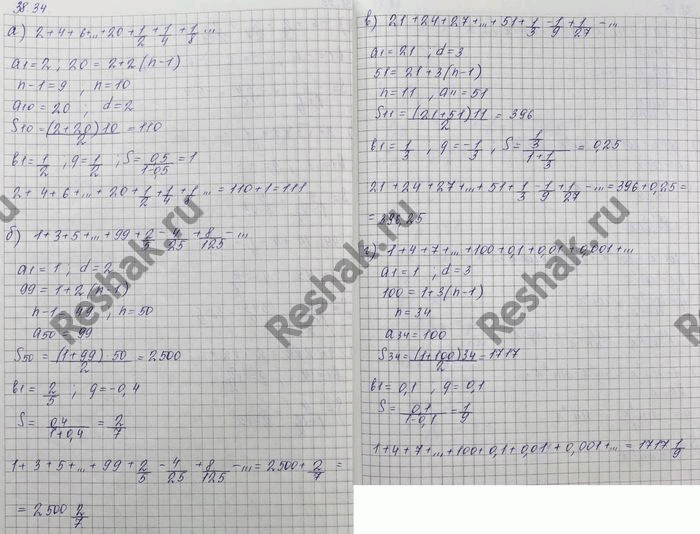 38 34
а) 2+4+6+...+20+1/2+1/4+1/8...
a1=2, 20=2+2(n-1)
n-1=9, n=10
a10=20; d=2
S10=(2+20)10/2=110
b1=1/2, q=1/2; S=0,5/1-0,5=1
2+4+6+...+20+1/2+1/4+1/8...=110+1=111
б) 1+3+5+...+99+2/5-4/25+8/125-...
a1=1; d=2
99=1+2(n-1)
n-1=49, n=50
a50=99
S50=(1+99)50/2=2500
b1=2/5; q=-0,4
S=0,4/1+0,4=2/7
1+3+5+...+99+2/5-4/25+8/125-...=2500+2/7=
=2500 2/7
в) 21+24+27+...+51+1/3-1/9+1/27-...
a1=21; d=3
51=21+3(n-1)
n=11, a11=51
S11=(21+51)11/2=396
b1=1/3, q=-1/3, S=1/3/1+1/3=0,25
21+24+27+...+51+1/3-1/9+1/27-...=396+0,25=
=396,25
г) 1+4+7+...+100+0,1+0,01+0,001+...
a1=1, d=3
100=1+3(n-1)
n=34
a34=100
S34=(1+100)34/2=1717
b1=0,1, q=0,1
S=0,1/1-0,1=1/9
1+4+7+...+100+0,1+0,01+0,001+...=1717 1/9
Reshak.ru
Reshak.ru